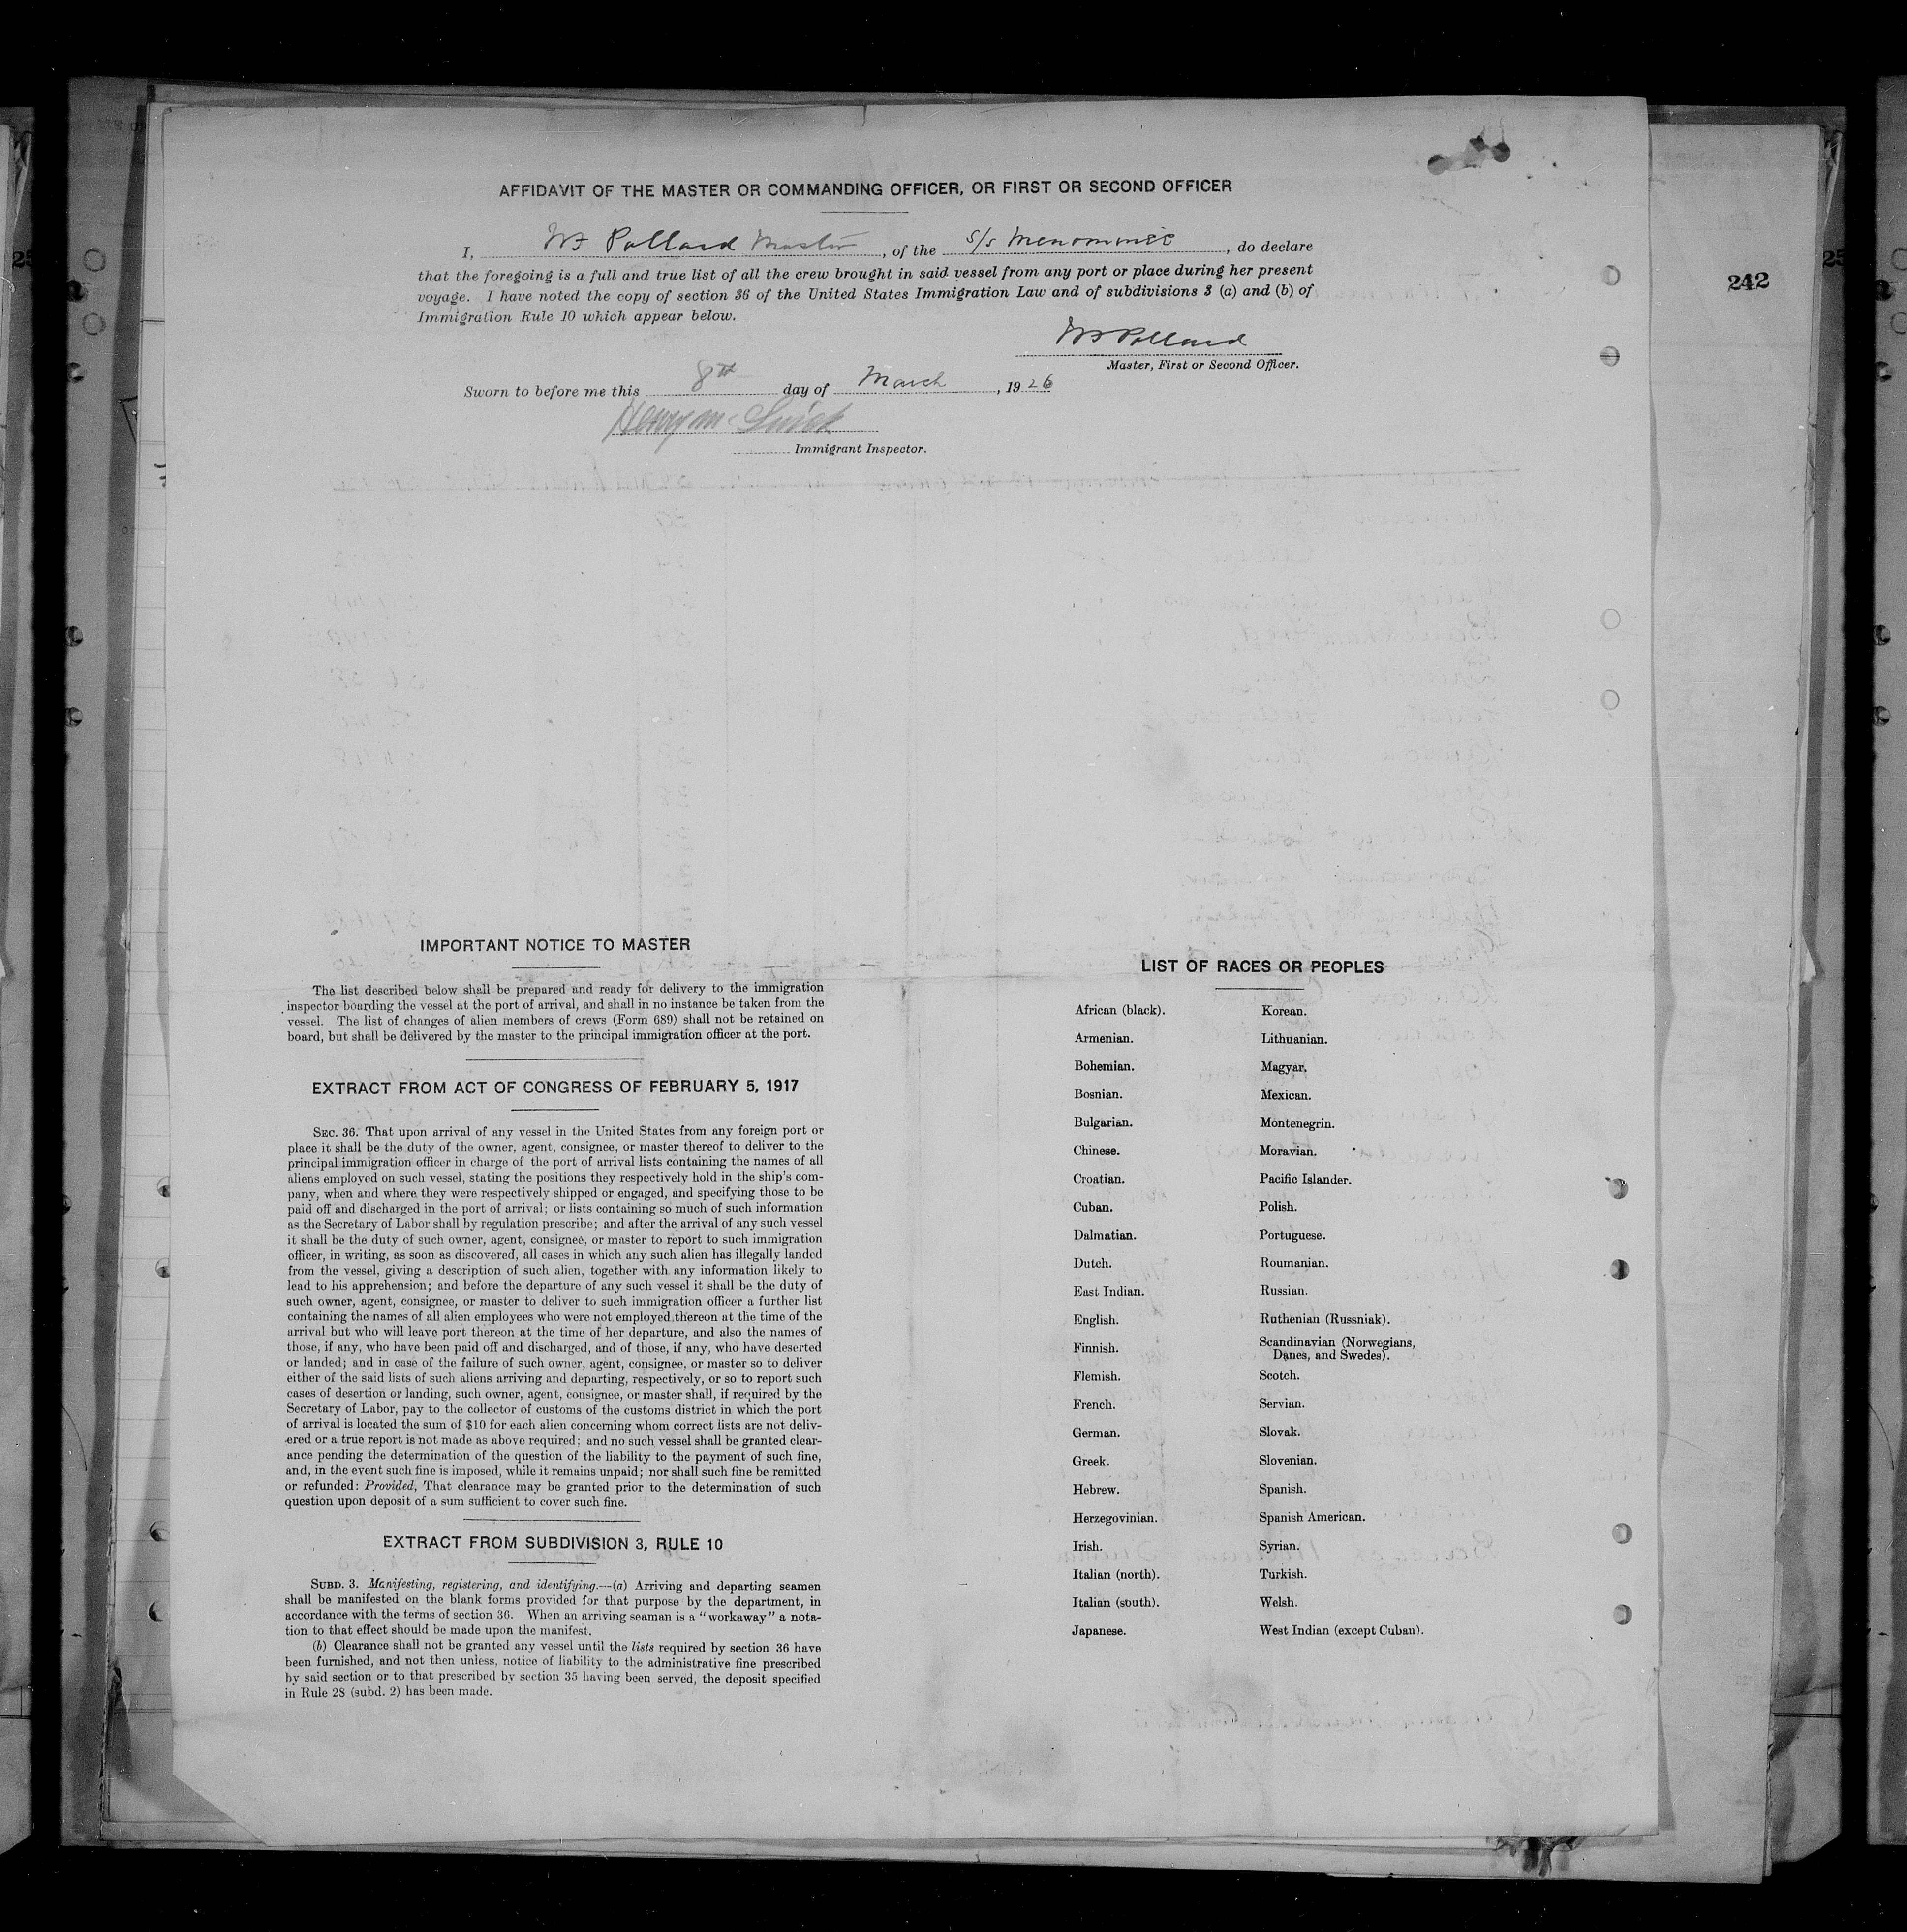 242
AFFIDAVIT OF THE MASTER OR COMMANDING OFFICER, OR FIRST OR SECOND OFFICER
I, Pollard Master, of the S/S Menominee, do declare
that the foregoing is a full and true list of all the crew brought in said vessel from any port or place during her present
voyage. I have noted the copy of section 36 of the United States Immigration Law and of subdivisions 3 (a) and (b) of
Immigration Rule 10 which appear below.
Pollard
Master, First or Second Officer.
Sworn to before me this 8th day of March, 1926
Henry
Immigrant Inspector.
IMPORTANT NOTICE TO MASTER
The list described below shall be prepared and ready for delivery to the immigration
inspector boarding the vessel at the port of arrival, and shall in no instance be taken from the
vessel. The list of changes of alien members of crews (Form 689) shall not be retained on
board, but shall be delivered by the master to the principal immigration officer at the port.
EXTRACT FROM ACT OF CONGRESS OF FEBRUARY 5, 1917
SEC. 36. That upon arrival of any vessel in the United States from any foreign port or
place it shall be the duty of the owner, agent, consignee, or master thereof to deliver to the
principal immigration officer in charge of the port of arrival lists containing the names of all
aliens employed on such vessel, stating the positions they respectively hold in the ship's com-
pany, when and where they were respectively shipped or engaged, and specifying those to be
paid off and discharged in the port of arrival; or lists containing so much of such information
as the Secretary of Labor shall by regulation prescribe; and after the arrival of any such vessel
it shall be the duty of such owner, agent, consignee, or master to report to such immigration
officer, in writing, as soon as discovered, all cases in which any such alien has illegally landed
from the vessel, giving a description of such alien, together with any information likely to
lead to his apprehension; and before the departure of any such vessel it shall be the duty of
such owner, agent, consignee, or master to deliver to such immigration officer a further list
containing the names of all alien employees who were not employed thereon at the time of the
arrival but who will leave port thereon at the time of her departure, and also the names of
those, if any, who have been paid off and discharged, and of those, if any, who have deserted
or landed; and in case of the failure of such owner, agent, consignee, or master so to deliver
either of the said lists of such aliens arriving and departing, respectively, or so to report such
cases of desertion or landing, such owner, agent, consignee, or master shall, if required by the
Secretary of Labor, pay to the collector of customs of the customs district in which the port
of arrival is located the sum of $10 for each alien concerning whom correct lists are not deliv-
ered or a true report is not made as above required; and no such vessel shall be granted clear-
ance pending the determination of the question of the liability to the payment of such fine,
and, in the event such fine is imposed, while it remains unpaid; nor shall such fine be remitted
or refunded: Provided, That clearance may be granted prior to the determination of such
question upon deposit of a sum sufficient to cover such fine.
EXTRACT FROM SUBDIVISION 3, RULE 10
SUBD. 3. Manifesting, registering, and identifying.—(a) Arriving and departing seamen
shall be manifested on the blank forms provided for that purpose by the department, in
accordance with the terms of section 36. When an arriving seaman is a "workaway" a nota-
tion to that effect should be made upon the manifest.
(b) Clearance shall not be granted any vessel until the lists required by section 36 have
been furnished, and not then unless, notice of liability to the administrative fine prescribed
by said section or to that prescribed by section 35 having been served, the deposit specified
in Rule 28 (subd. 2) has been made.
LIST OF RACES OR PEOPLES
African (black).
Armenian.
Bohemian.
Bosnian.
Bulgarian.
Chinese.
Croatian.
Cuban.
Dalmatian.
Dutch.
East Indian.
English.
Finnish.
Flemish.
French.
German.
Greek.
Hebrew.
Herzegovinian.
Irish.
Italian (north).
Italian (south).
Japanese.
Korean.
Lithuanian.
Magyar.
Mexican.
Montenegrin.
Moravian.
Pacific Islander.
Polish.
Portuguese.
Roumanian.
Russian.
Ruthenian (Russniak).
Scandinavian (Norwegians,
Danes, and Swedes).
Scotch.
Servian.
Slovak.
Slovenian.
Spanish.
Spanish American.
Syrian.
Turkish.
Welsh.
West Indian (except Cuban).